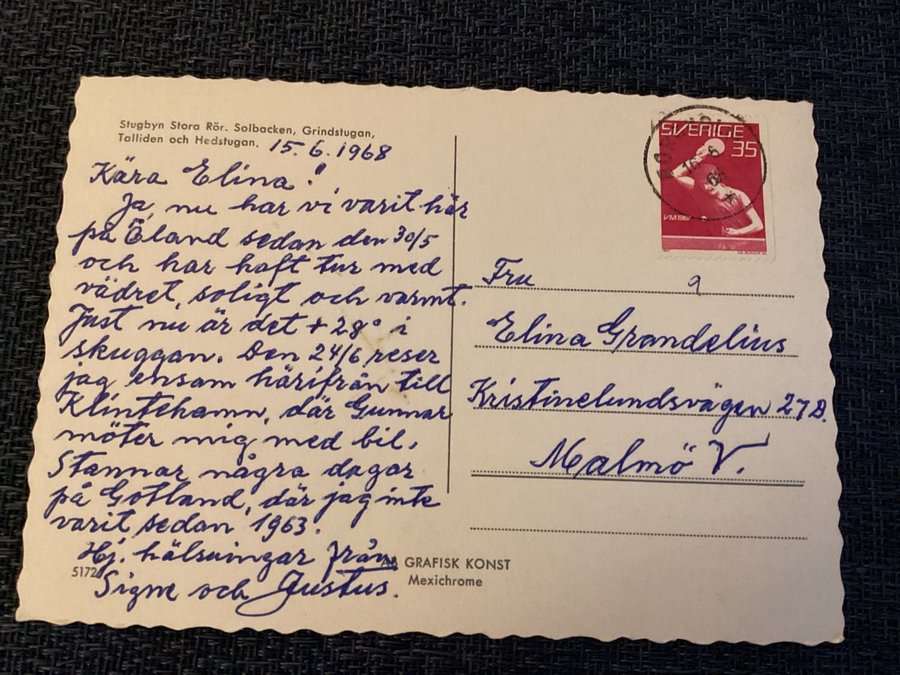 Stugbyn Stora Rör. Solbacken, Grindstugan,
Talliden och Hedstugan.
15.6.1968
Kära Elina!
Ja, nu har vi varit här
på Öland sedan den 30/5
och har haft tur med
vädret, soligt och varmt.
Just nu är det +28° i
skuggan. Den 24/6 reser
jag ensam härifrån till
Klintehamn, där Gunnar
möter mig med bil.
Stannar några dagar
på Gotland, där jag inte
varit sedan 1963.
Hj. hälsningar från
Signe och Justus.
5172
SVERIGE
35
VM 1967
16 6
68
Fru
Elina Grandelius
Kristinelundsvägen 27B.
Malmö V.
GRAFISK KONST
Mexichrome